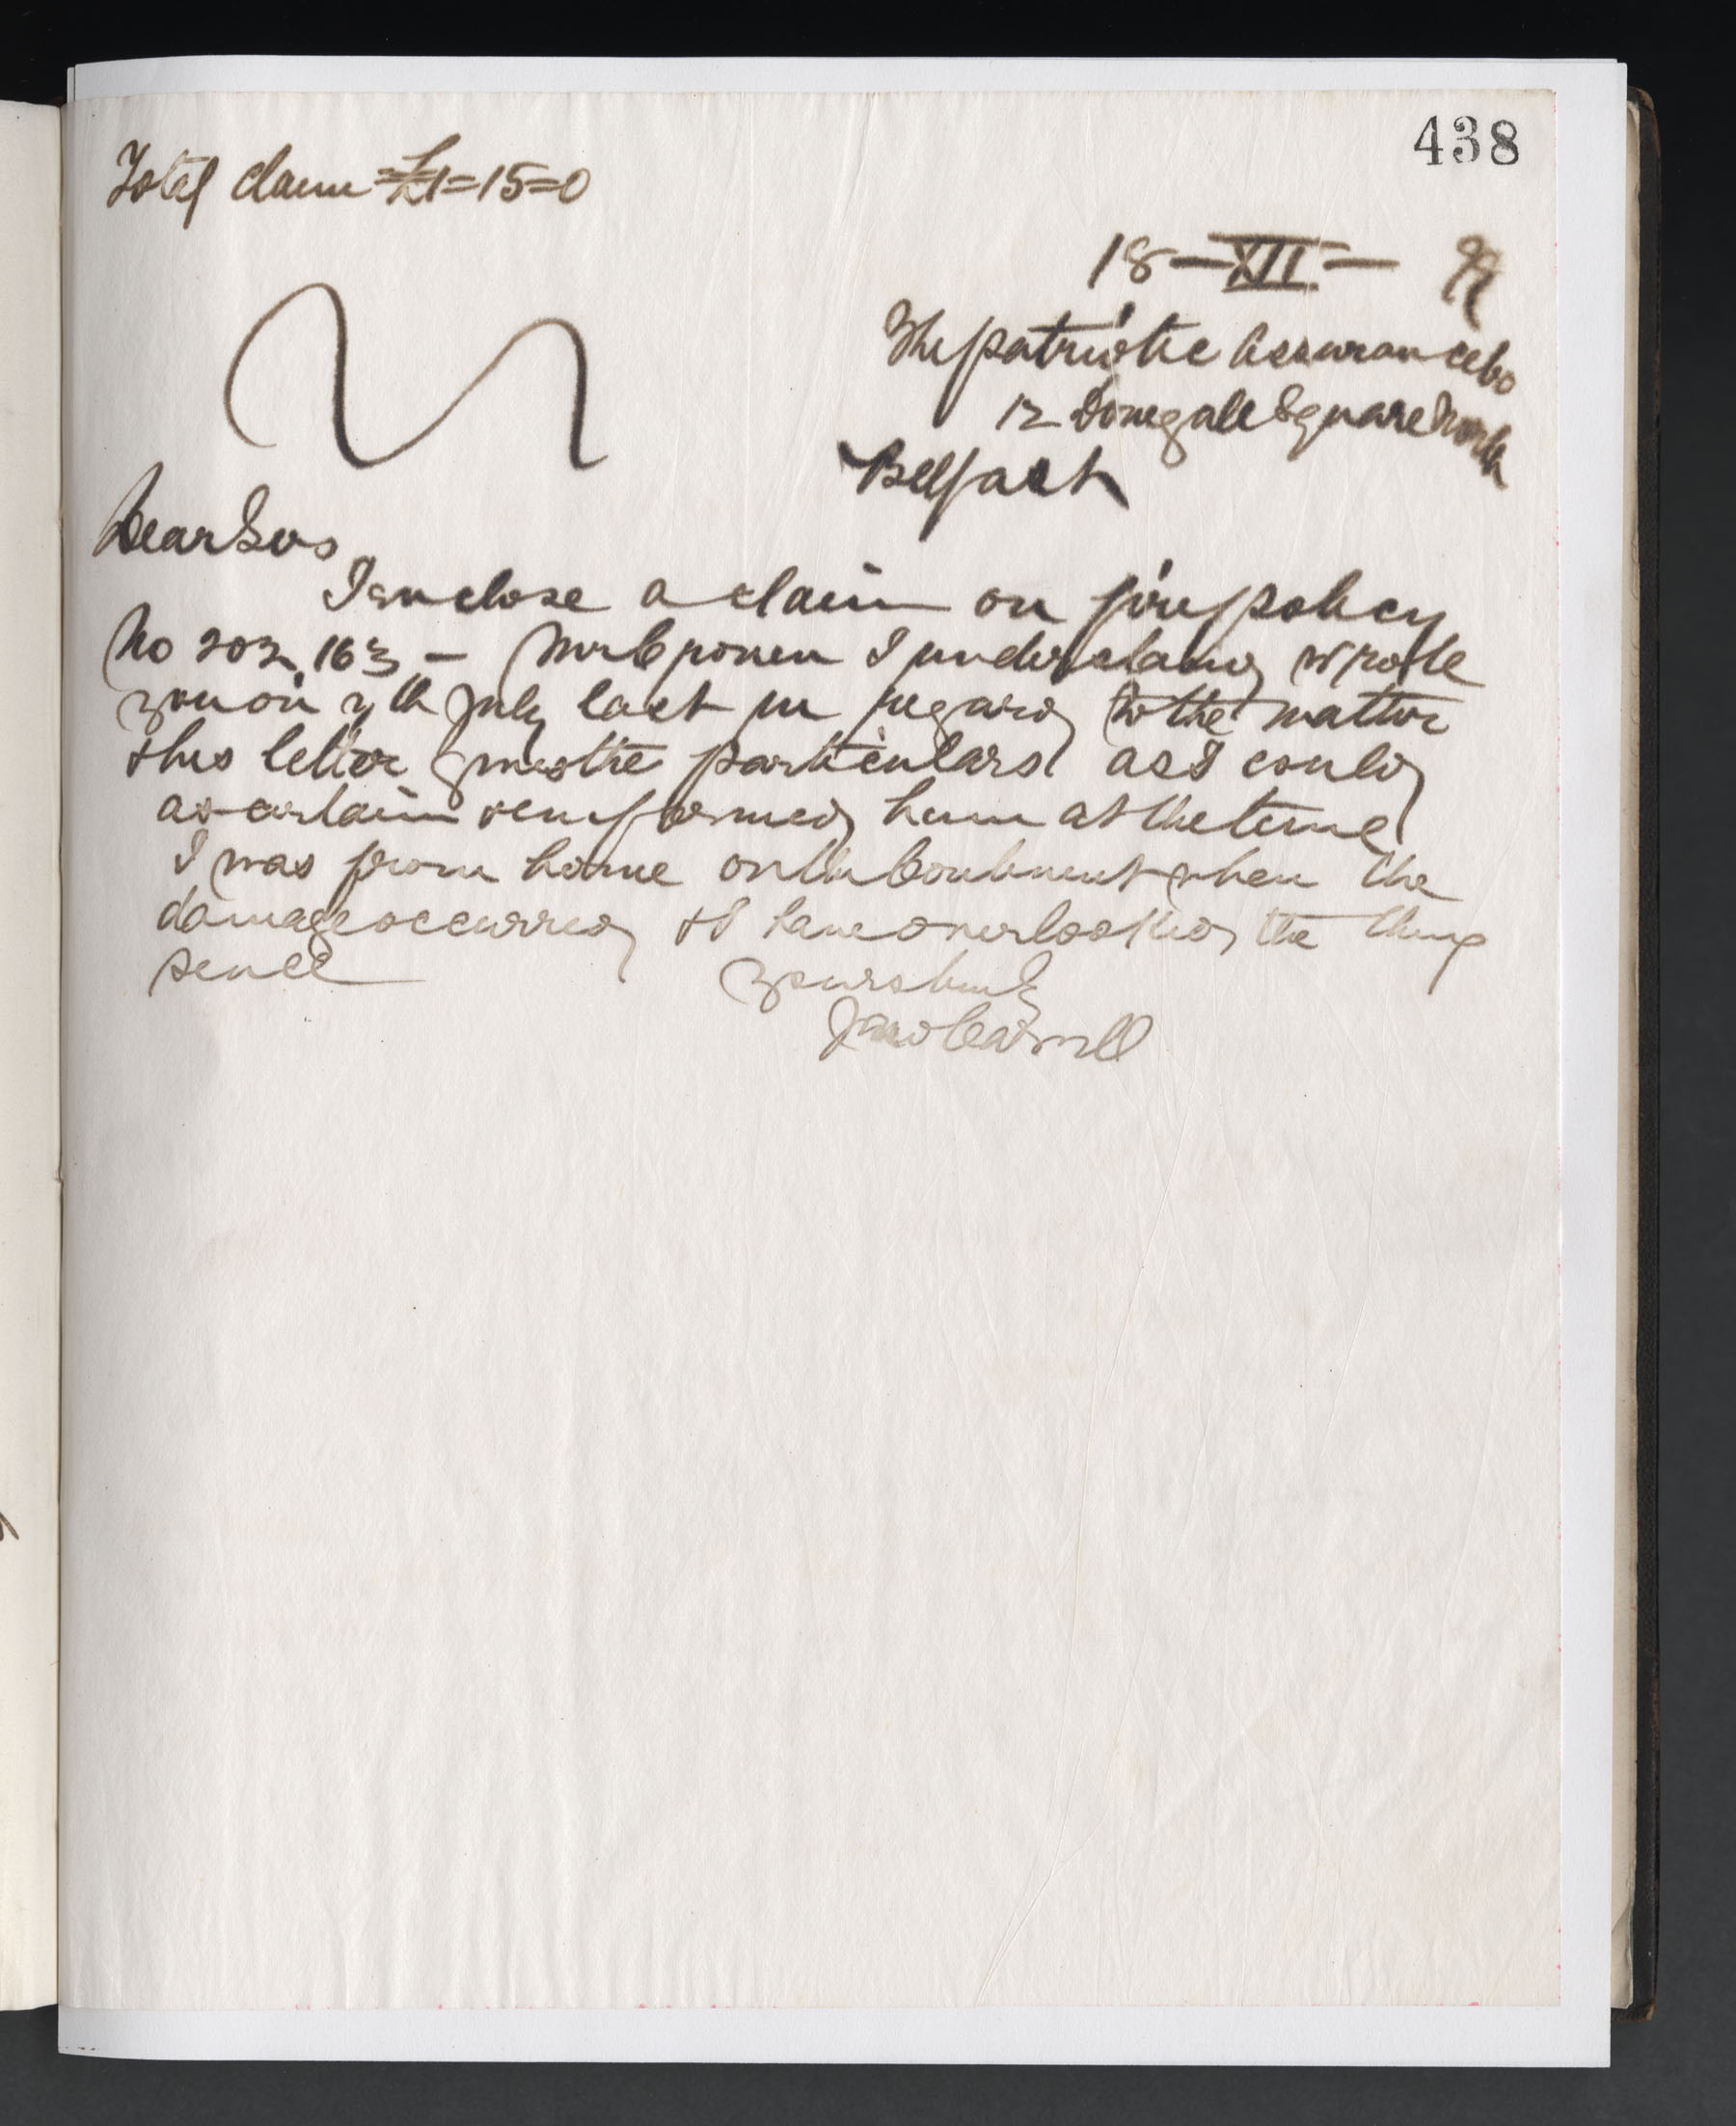 438
Total claim = £1=15=0
18 - XII - 99
The patriotic Assurance Co
12 Donegall Square North
Belfast
Dear Sirs
I enclose a claim on fire policy
No 203,163 - Mr Capper I understand wrote
you on 7th July last in regard to the matter
this letter gives the particulars as I could
ascertain & informed him at the time
I was from home on the Continent when the
damage occurred & I have overlooked the thing
since
yours truly